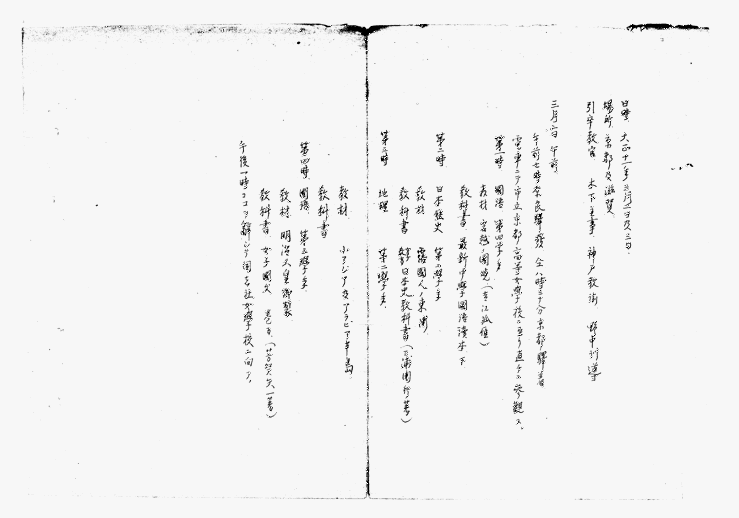 日時 大正十一年三月二日及三日、
場所 京都及滋賀、
引率教官 木下主事 神戸教諭 野中訓導
三月二日 午前、
午前七時奈良驛發 仝八時三十分京都驛着
電車ニテ市立京都高等女學校ニ至リ直チニ參觀ス、
第一時 國語 第四學年
教科書 最新中學國語讀本 下
第二時 日本歴史 第二學年
教材 露國人ノ東漸
教科書 日本史教科書(三浦周行著)
第三時 地理 第二學年、
教材 小アジア及アラビア半島、
教科書
第四時 國語、 第三學年、
教材 明治天皇御製
教科書 女子國文 巻五、(芳賀矢一著)
午後一時ココヲ辭シテ同志社女學校ニ向フ、